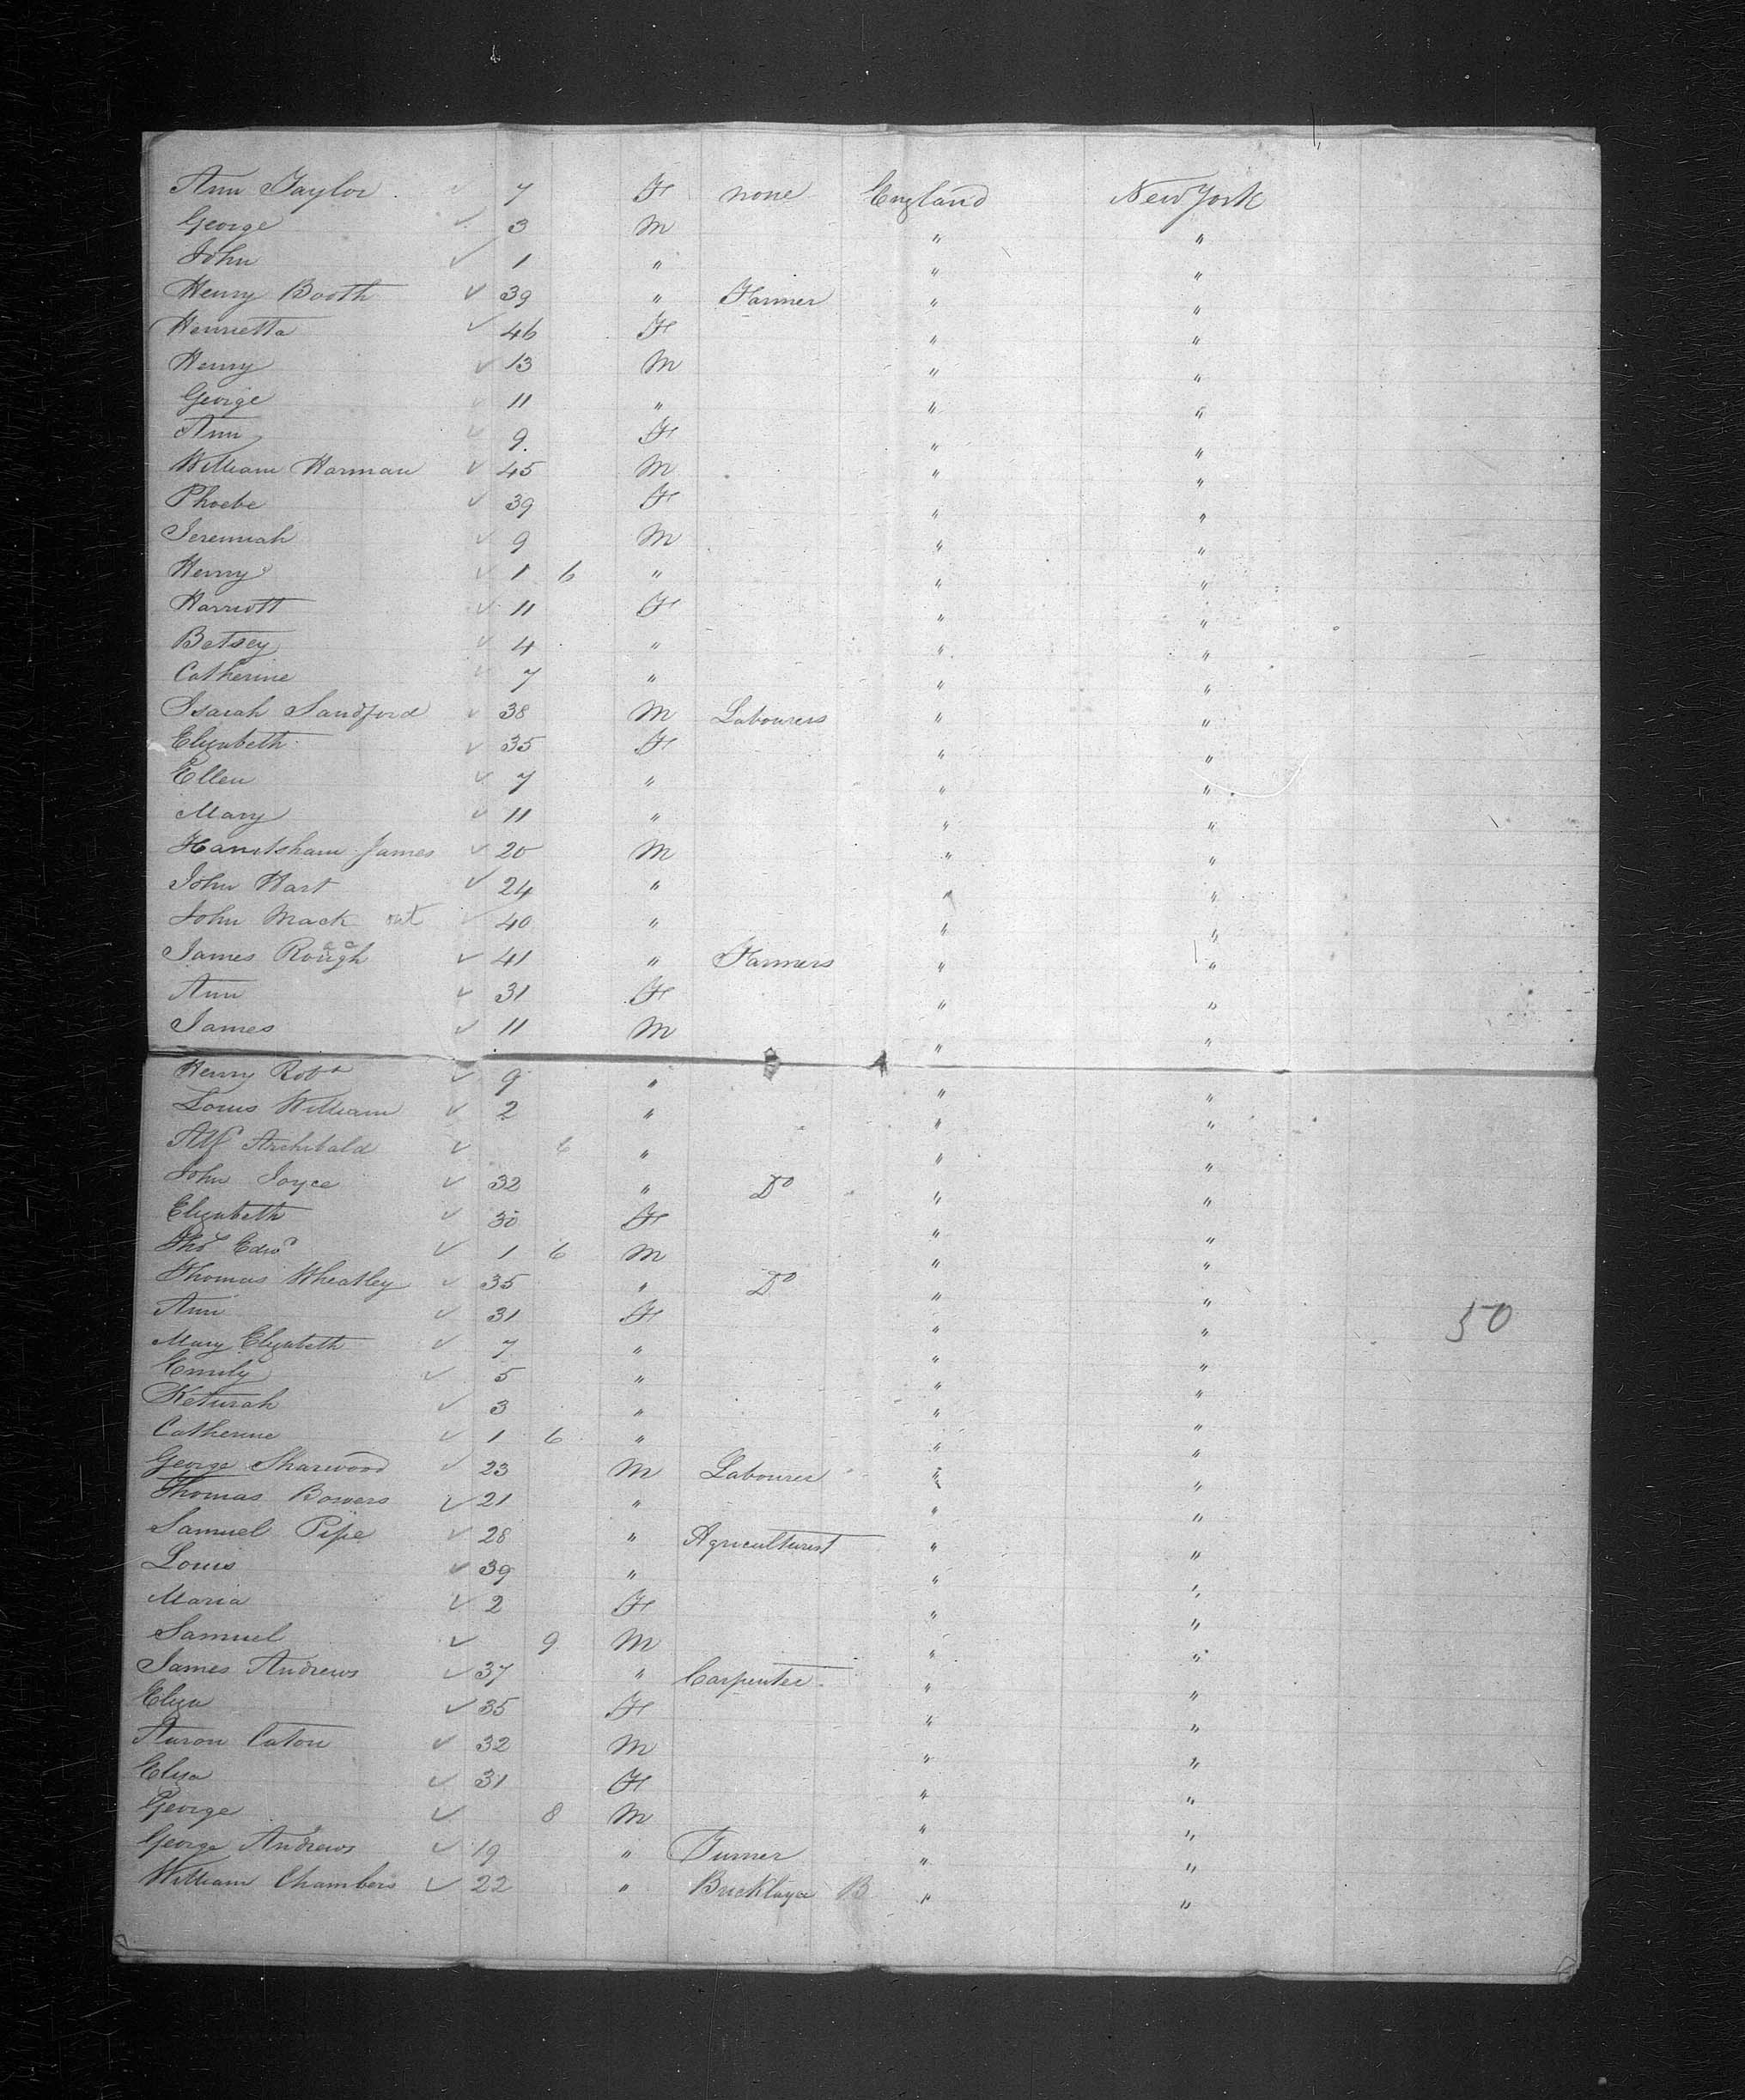 Ann Taylor ✓ 7 F none England New York
George ✓ 3 M " "
John ✓ 1 " " "
Henry Booth ✓ 39 " Farmer " "
Henrietta ✓ 46 F " "
Henry ✓ 13 M " "
George ✓ 11 " " "
Ann ✓ 9 F " "
William Harman ✓ 45 M " "
Phoebe ✓ 39 F " "
Jeremiah ✓ 9 M " "
Henry ✓ 1 6 " " "
Harriott ✓ 11 F " "
Betsey ✓ 4 " " "
Catherine ✓ 7 " " "
Isaiah Sandford ✓ 38 M Labourers " "
Elizabeth ✓ 35 F " "
Ellen ✓ 7 " " "
Mary ✓ 11 " " "
James ✓ 20 M " "
John Hart ✓ 24 " " "
John Mack ✓ 40 " " "
James Rough ✓ 41 " Farmers " "
Ann ✓ 31 F " "
James ✓ 11 M " "
Henry Robt ✓ 9 " " "
Louis William ✓ 2 " " "
Alf Archibald ✓ 6 " " "
John Joyce ✓ 32 " Do " "
Elizabeth ✓ 30 F " "
Thos Edwd ✓ 1 6 M " "
Thomas Wheatley ✓ 35 " Do " "
Ann ✓ 31 F " " 50
Mary Elizabeth ✓ 7 " " "
Emily ✓ 5 " " "
Keturah ✓ 3 " " "
Catherine ✓ 1 6 " " "
George Sharwood ✓ 23 M Labourer " "
Thomas Bowers ✓ 21 " " "
Samuel Pipe ✓ 28 " Agriculturist " "
Louis ✓ 39 " " "
Maria ✓ 2 F " "
Samuel ✓ 9 M " "
James Andrews ✓ 37 " Carpenter " "
Eliza ✓ 35 F " "
Aaron Caton ✓ 32 M " "
Eliza ✓ 31 F " "
George ✓ 8 M " "
George Andrews ✓ 19 " Turner " "
William Chambers ✓ 22 " Bricklayer B " "